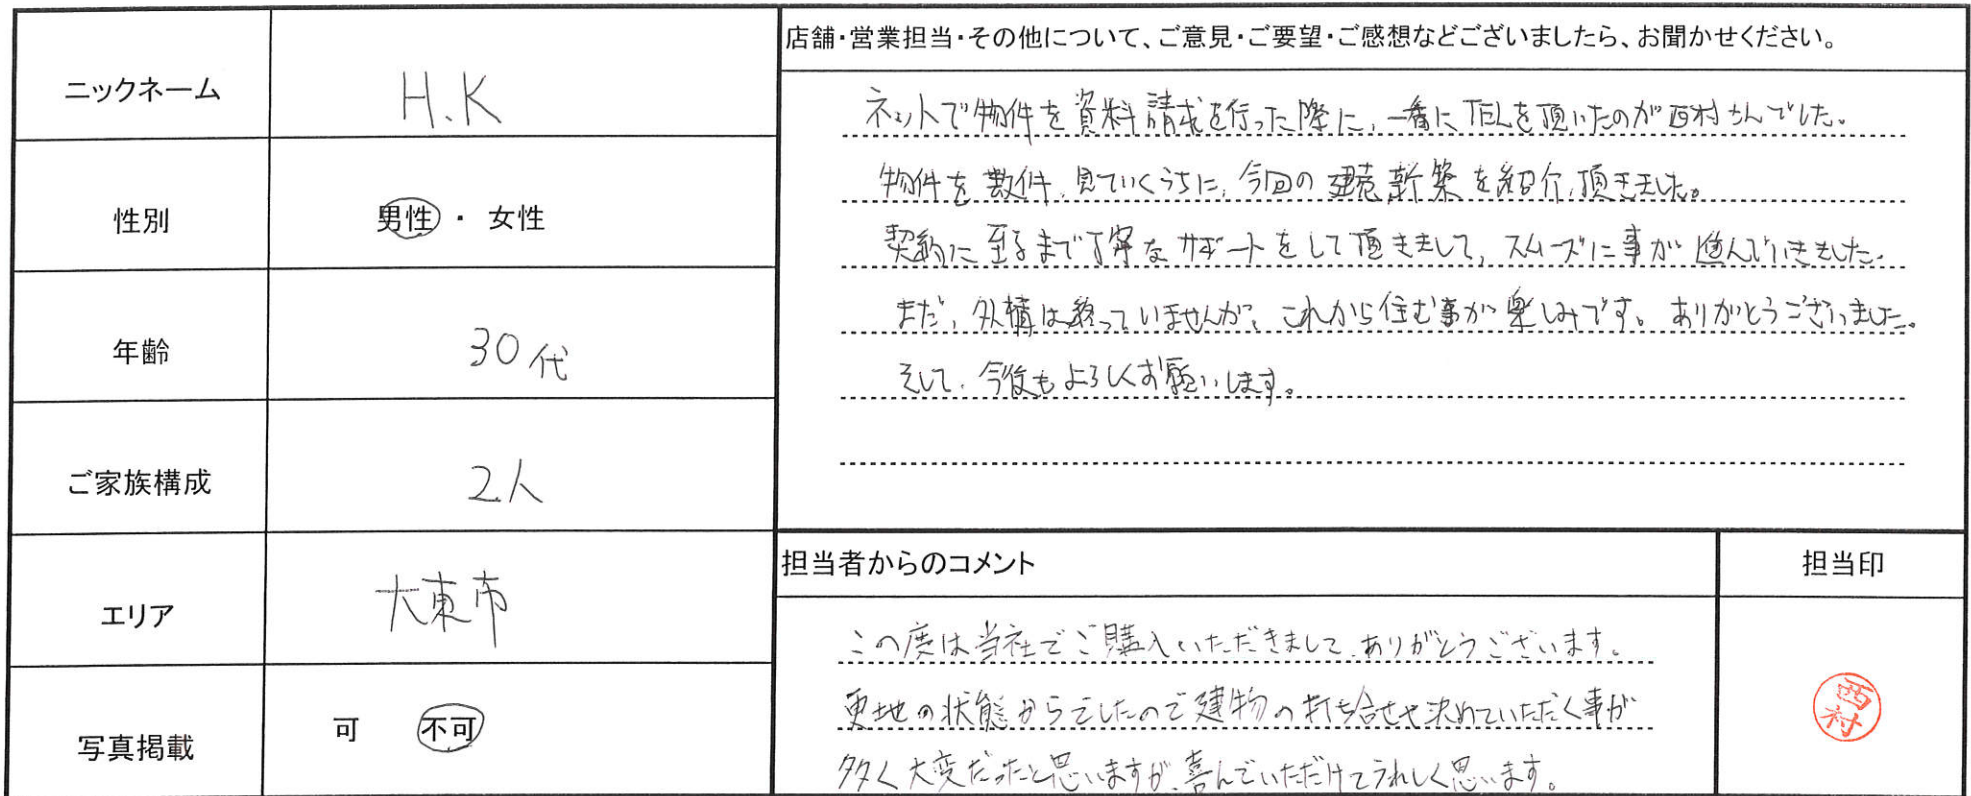 ニックネーム
H.K
性別
男性・女性
年齢
30代
ご家族構成
2人
エリア
大東市
写真掲載
可 不可
店舗・営業担当・その他について、ご意見・ご要望・ご感想などございましたら、お聞かせください。
ネットで物件を資料請求を行った際に、一番にTELを頂いたのが西村さんでした。
物件を数件、見ていくうちに、今回の建売新築を紹介頂きました。
契約に至るまで丁寧なサポートをして頂きまして、スムーズに事が進んでいきました。
まだ、外構は終っていませんが、これから住む事が楽しみです。ありがとうございました。
そして、今後もよろしくお願いします。
担当者からのコメント
担当印
この度は当社でご購入いただきまして、ありがとうございます。
更地の状態からでしたので建物の打ち合せや決めていただく事が
多く大変だったと思いますが、喜んでいただけてうれしく思います。
西村